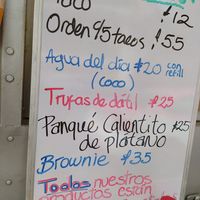 Taco $12
Orden 4/5 tacos $55
Agua del día $20 con refill
(coco)
Trufas de dátil $25
Panqué Calientito $25
de plátano
Brownie $35
Todos nuestros
productos están